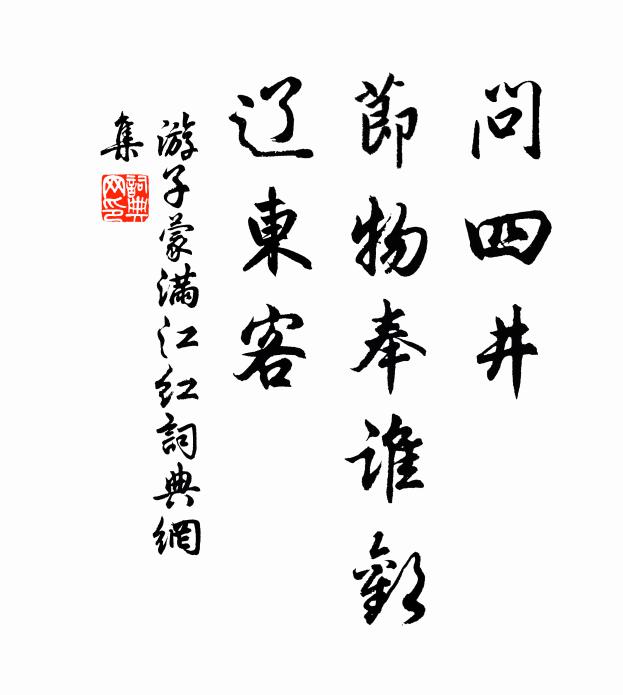 問四井
節物奉誰歡
辽東客
游子蒙滿江紅詞典網
集
詞典网印